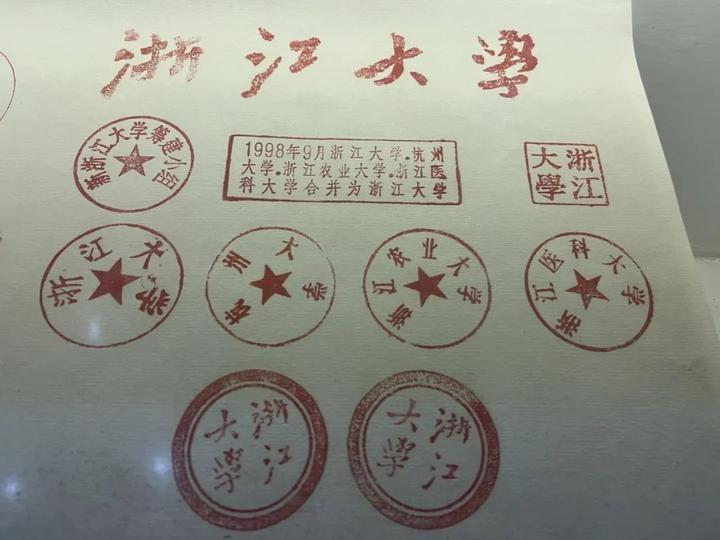 浙江大学
新浙江大学筹建小组
1998年9月浙江大学.杭州
大学.浙江农业大学.浙江医
科大学合并为浙江大学
浙江
大學
浙江大学
杭州大学
浙江农业大学
浙江医科大学
浙江
大学
浙江
大学